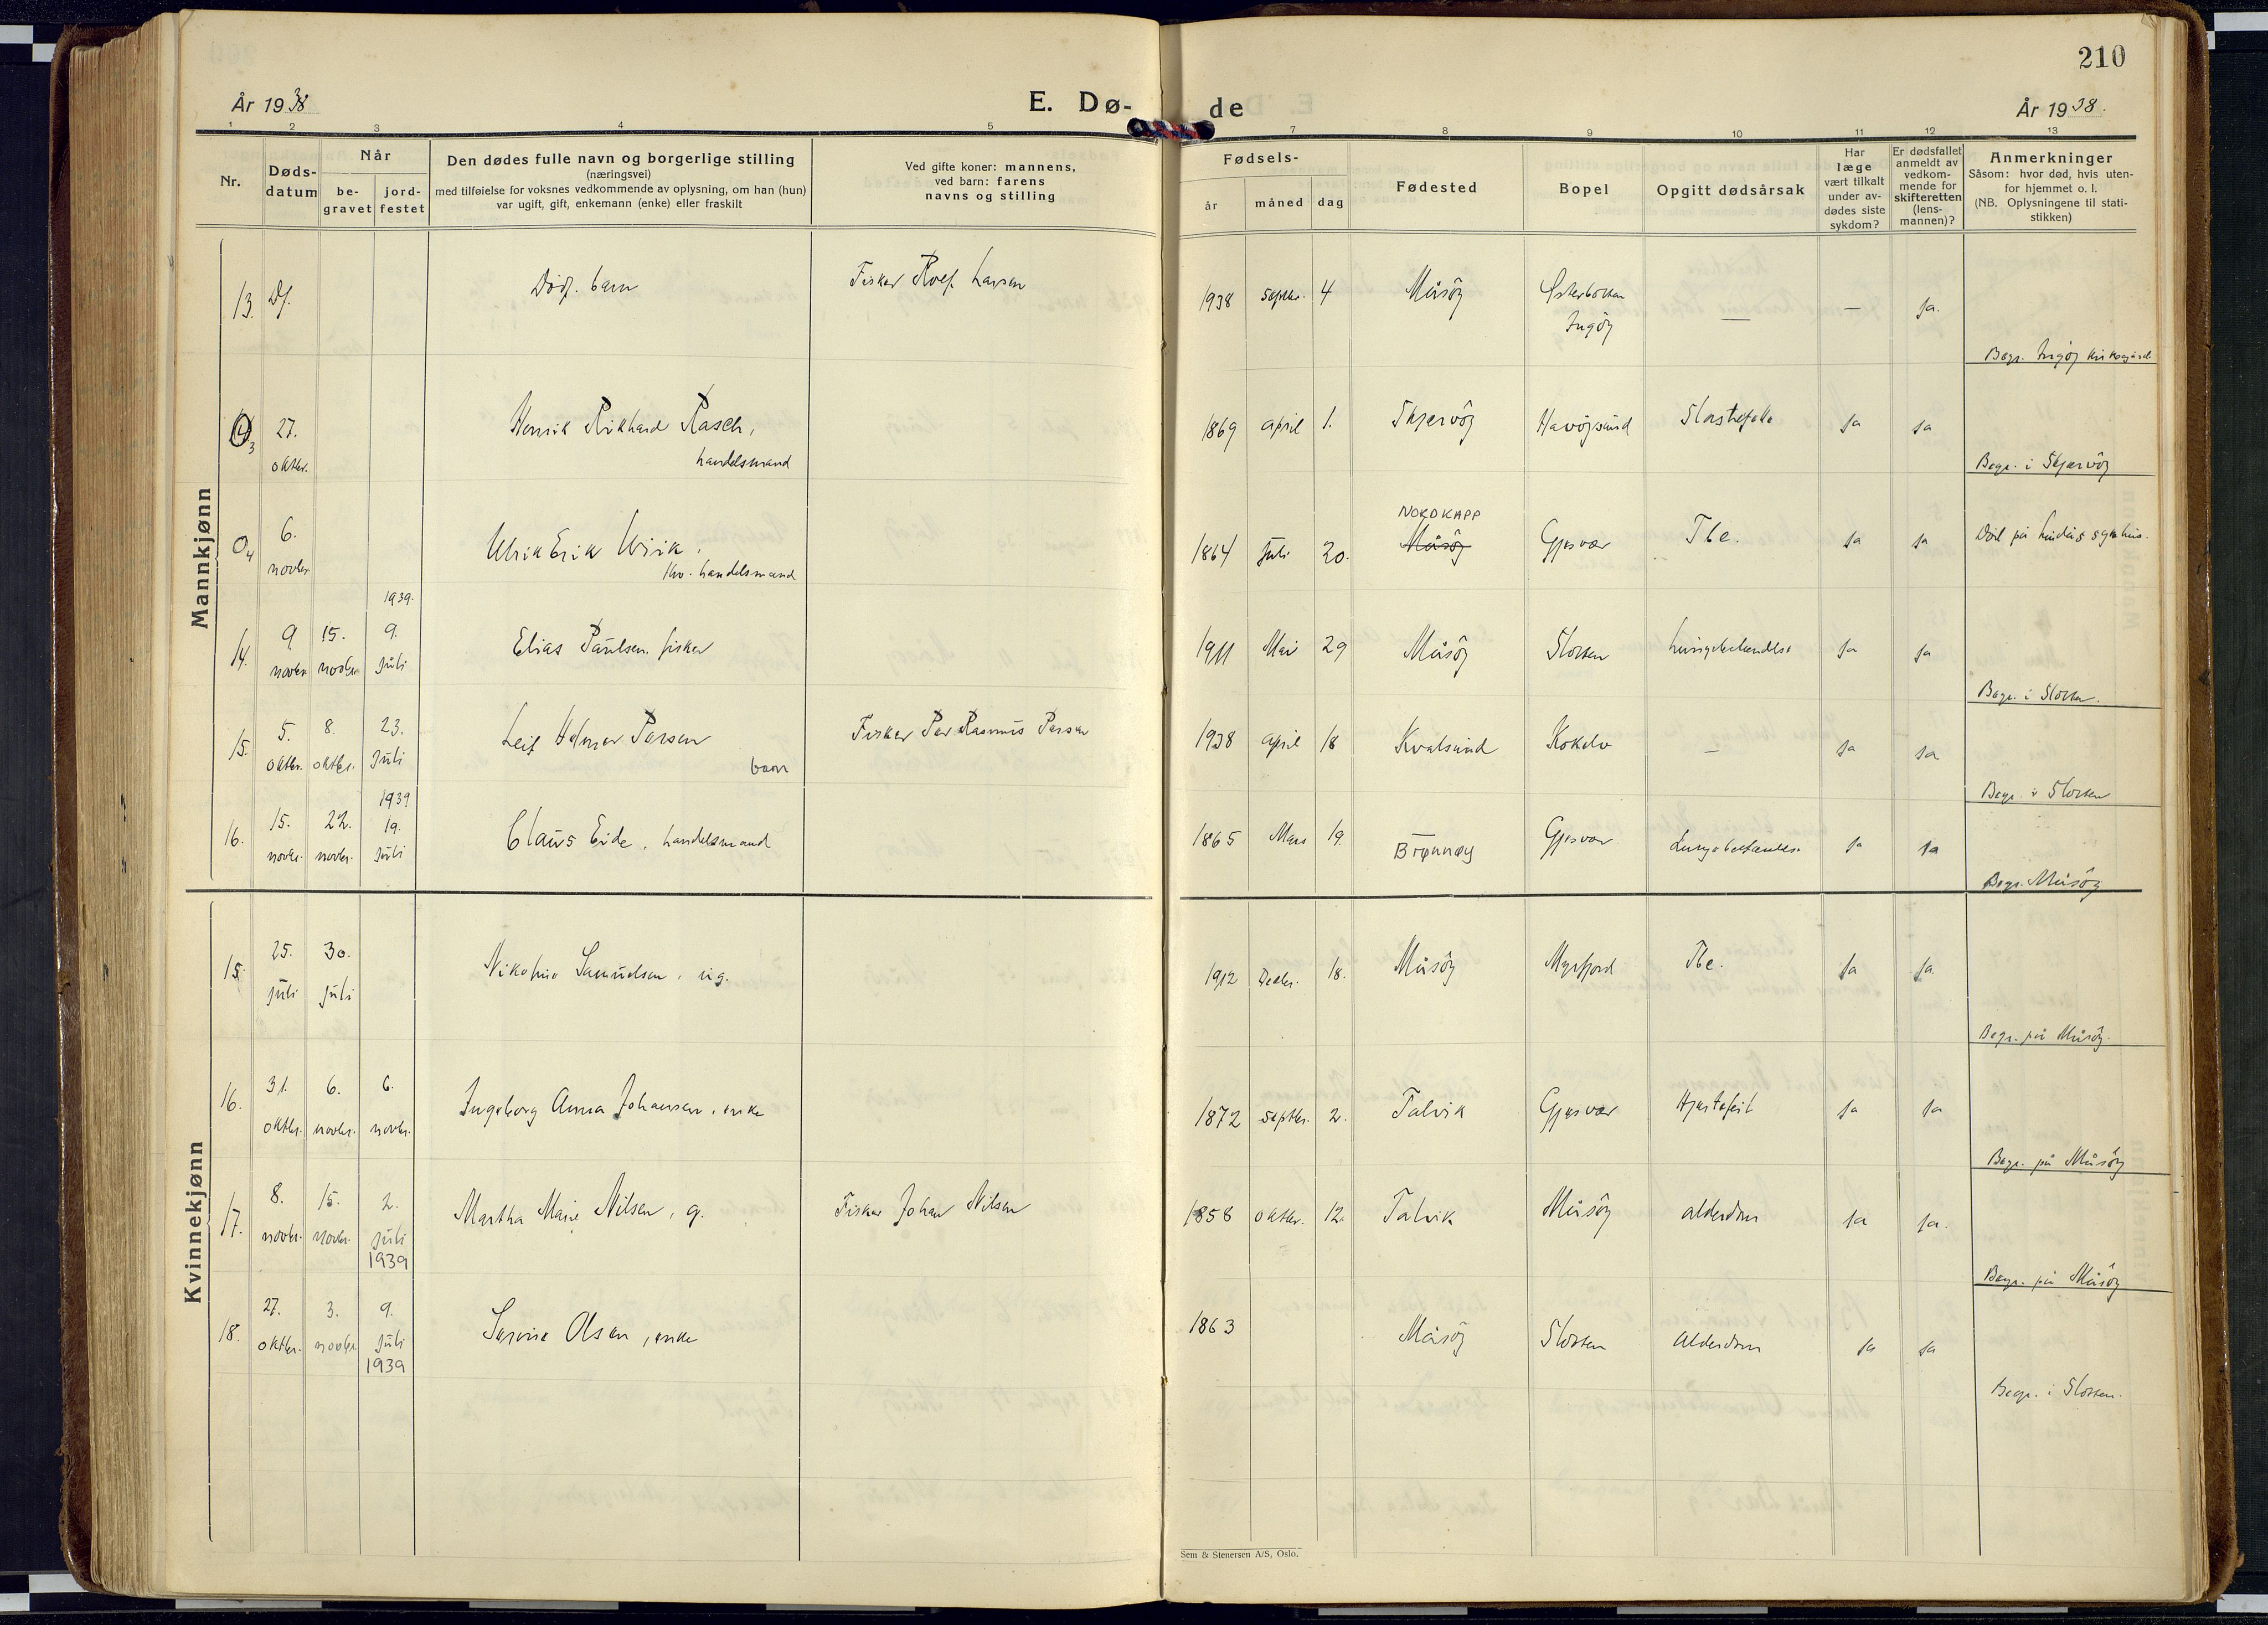 210
År 1938
E. Dø-
de
År 1938.
1 2 3 4 5
7 8 9 10 11 12 13
Nr.
Døds-
datum
Når
be-
gravet
jord-
festet
Den dødes fulle navn og borgerlige stilling
(næringsvei)
med tilføielse for voksnes vedkommende av oplysning, om han (hun)
var ugift, gift, enkemann (enke) eller fraskilt
Ved gifte koner: mannens,
ved barn: farens
navns og stilling
Fødsels-
år
måned
dag
Fødested
Bopel
Opgitt dødsårsak
Har
læge
vært tilkalt
under av-
dødes siste
sykdom?
Er dødsfallet
anmeldt av
vedkom-
mende for
skifteretten
(lens-
mannen)?
Anmerkninger
Såsom: hvor død, hvis uten-
for hjemmet o. l.
(NB. Oplysningene til stati-
stikken)
Mannkjønn
13. Df. Dødf. barn Fisker Rolf Larsen 1938 Septbr. 4 Måsöy Ingöy — — Ja.
Begr. Ingöy kirkegård
3 27. oktbr. Henrik Rikhard Rasch, handelsmand 1869 april 1. Skjervöy Havöysund Ja Ja
Begr. i Skjervöy
0 4 6. novbr. Ulrik Erik Wiik, handelsmand 1864 Juli 20. NORDKAPP Måsöy Gjesvær Tbc. Ja Ja
14. 9 novbr. 15. novbr. 1939. 9. Juli Elias Paulsen, fisker 1911 Mai 29 Måsöy Slotten Lungebetændelse Ja Ja
Begr. i Slotten.
15. 5. oktbr. 8. oktbr. 23. Juli Leif Helmer Persen barn Fisker Per Rasmus Persen 1938 april 18 Kvalsund Kokelv — Ja Ja
Begr. i Slotten
16. 15. novbr. 22. novbr. 1939 19. Juli Claus Eide, handelsmand 1865 Mars 19. Brønnøy Gjesvær Lungebetændelse Ja Ja
Begr. Måsöy
Kvinnekjønn
15. 25. Juli 30. Juli Nikoline Samuelsen, ug. 1912 Decbr. 18. Måsöy Myrfjord Tbc. Ja Ja.
Begr. på Måsöy.
16. 31. oktbr. 6. novbr. 6. novbr. Ingeborg Anna Johansen, enke 1872 Septbr. 2. Talvik Gjesvær Hjertefeil Ja Ja
Begr. på Måsöy
17. 8. novbr. 15. novbr. 2. Juli 1939 Martha Marie Nilsen, g. Fisker Johan Nilsen 1858 oktbr. 12. Talvik Måsöy alderdom Ja Ja.
Begr. på Måsöy
18. 27. oktbr. 3. novbr. 9. Juli 1939 Olsen, enke 1863 Måsöy Slotten Alderdom Ja Ja
Begr. i Slotten.
Sem & Stenersen A/S, Oslo.